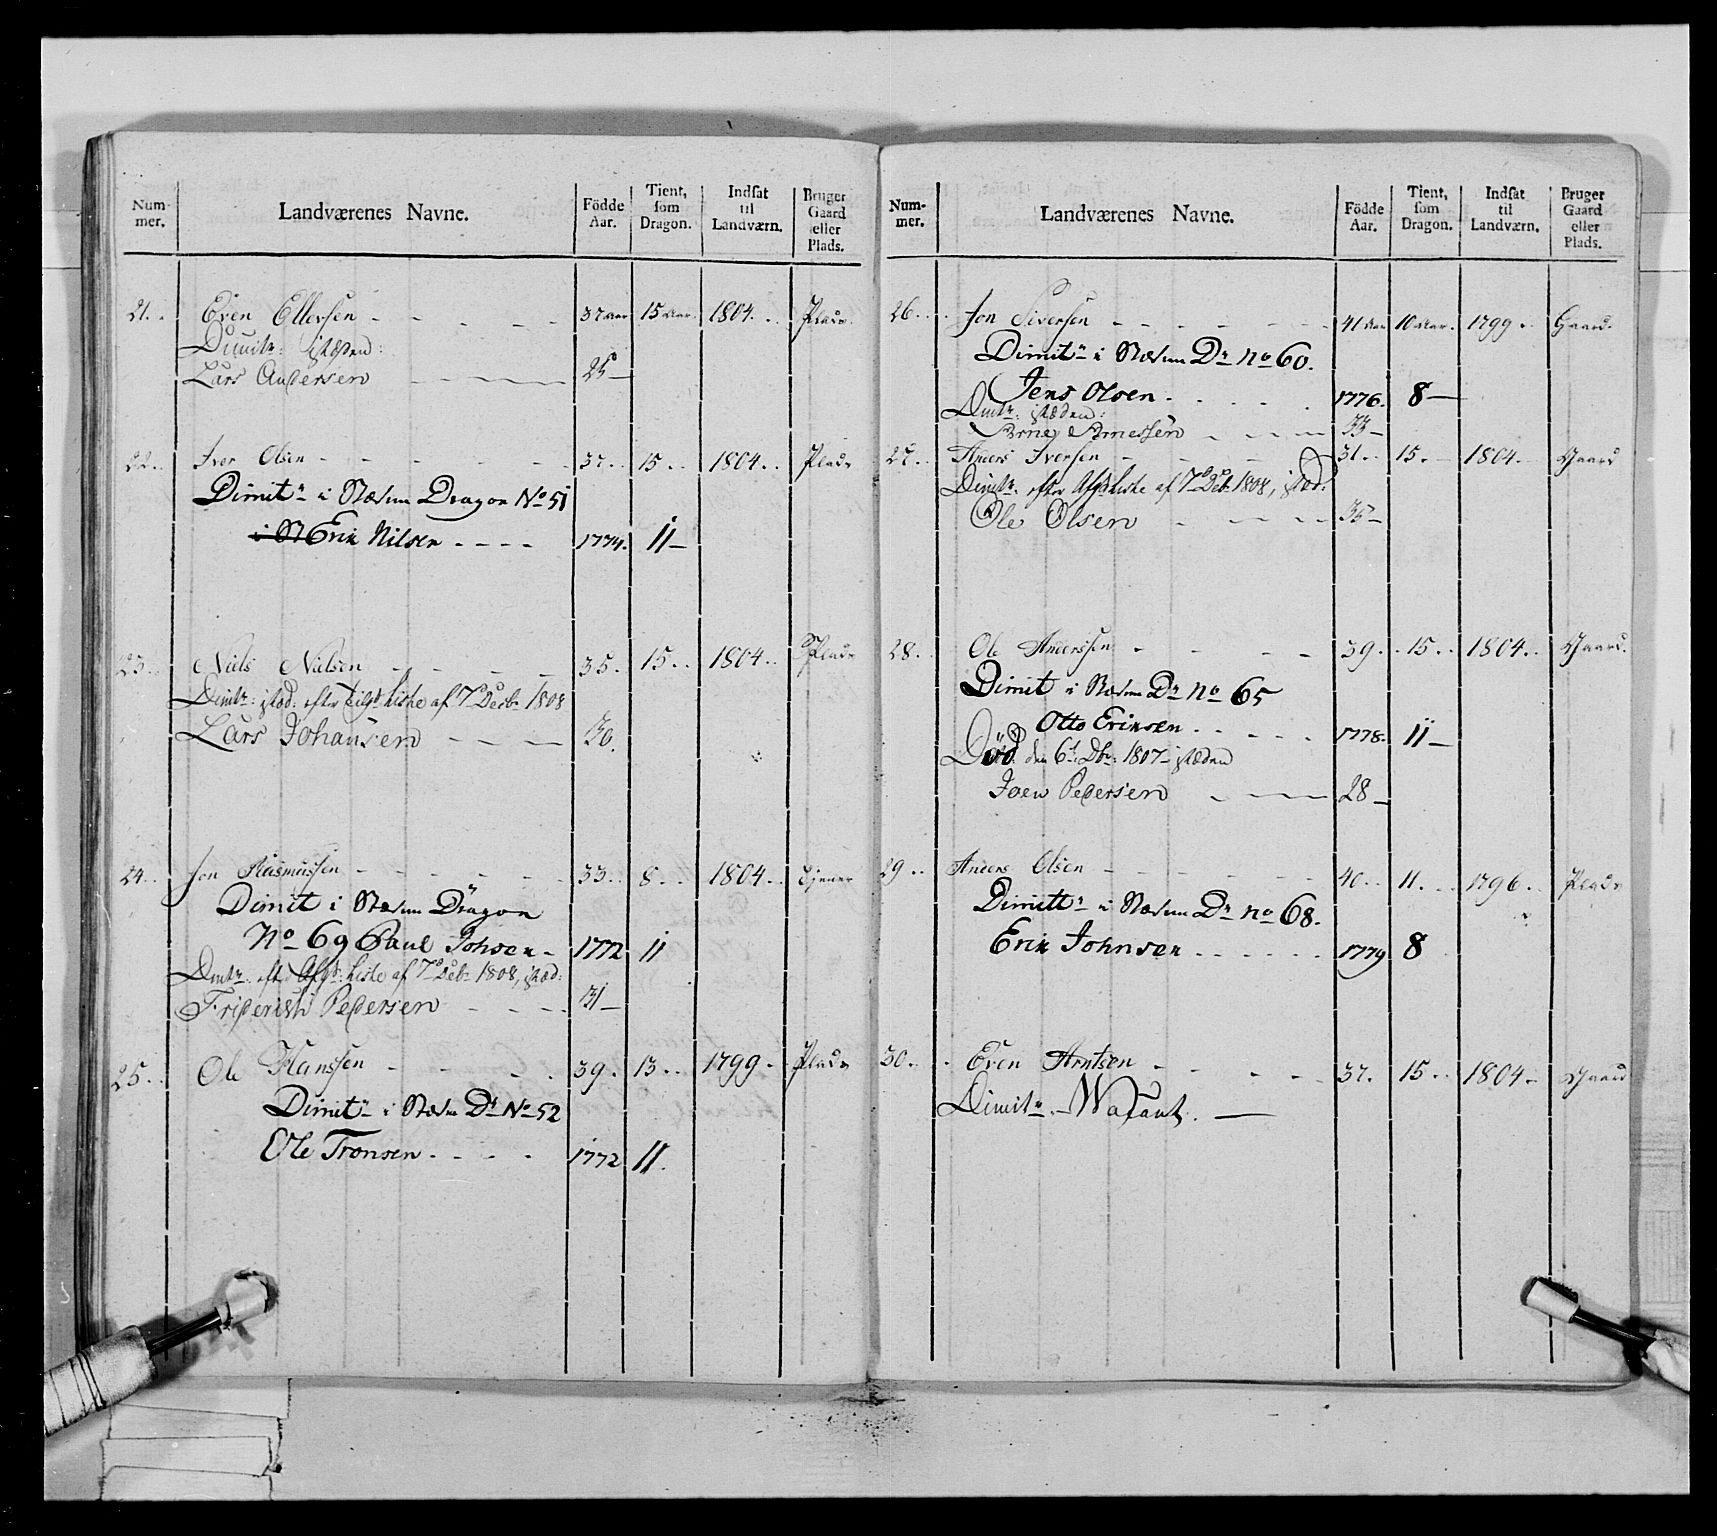 Num- mer. Landværenes Navne. Födde Aar. Tient, som Dragon. Indsat til Landværn. Bruger Gaard eller Plads.
21. Even Ellevsen 37 aar 15 aar 1804. Plads
Dimitr: isteden:
Lars Andersen 25
22. Iver Olsen 37. 15. 1804. Plads
Dimitr i Stædenn Dragon No 51
i St Erik Nilsen 1774. 11
23. Niels Nielsen 35. 15. 1804. Plads
Dimitr: isted: efter Liste af 7de Decbr 1808
Lars Johansen 30.
24. Jon Rasmussen 33. 8. 1804. Tjener
Dimit i Stædenn Dragon
No 69 Paul Johsen 1772 11
Dimitr: eftr Afg: Liste af 7de Debr 1808, isted:
Friderich Pedersen 31
25. Ole Hanssen 39. 13. 1799. Plads
Dimitr i Stæden Dr No 52
Ole Tronsen 1772 11.
Num- mer. Landværenes Navne. Födde Aar. Tient, som Dragon. Indsat til Landværn. Bruger Gaard eller Plads.
26. Jon Siversen 41 aar 10 aar. 1799. Gaard.
Dimitr i Stædenn Dr No 60.
Jens Olsen. 1776. 8
Dimtr: isteden:
Arne Arnessen 33
27. Anders Iversen 31. 15. 1804. Gaard
Dimitr. efter Afg Liste af 7de Debr 1808, isted:
Ole Olsen 35
28. Ole Anderssen 39. 15. 1804. Gaard.
Dimit i Stædenn Dr No 65
Otto Eriksen 1778. 11
Död den 6t Dbr: 1807 isteden
Joen Pedersen 28
29. Anders Olsen 40. 11. 1796. Plads
Dimittr i Stædenn Dr No 68.
Erik Johnsen 1779 8
30. Even Arntsen 37. 15. 1804. Gaard
Dimitr. Wacant.